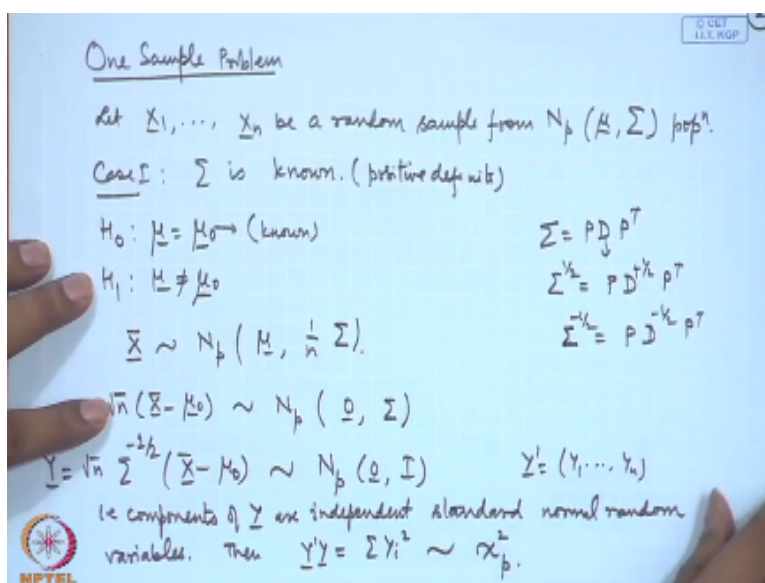 © CET
I.I.T. KGP
One Sample Problem
Let X1, ..., Xn be a random sample from Np (μ, Σ) popⁿ.
Case I : Σ is known. (positive definite)
H₀ : μ = μ₀ → (known)
Σ = P D Pᵀ
H₁ : μ ≠ μ₀
Σ^{1/2} = P D^{+1/2} Pᵀ
X̄ ~ Np ( μ, 1/n Σ ).
Σ^{-1/2} = P D^{-1/2} Pᵀ
√n (X̄ - μ₀) ~ Np ( 0, Σ)
Y = √n Σ^{-1/2} (X̄ - μ₀) ~ Np (0, I)
Y' = (Y₁ ... Yn)
i.e components of Y are independent standard normal random
variables. Then Y'Y = Σ Yi² ~ χ²p.
NPTEL